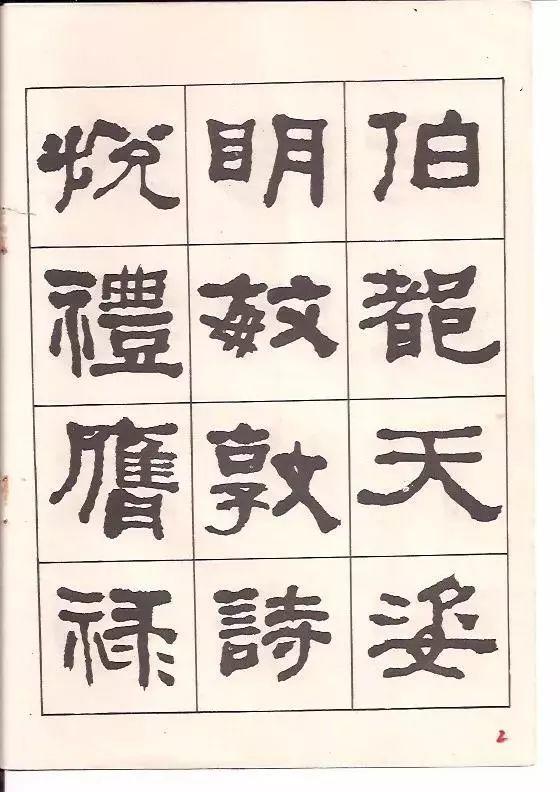 伯都天姿
明敏敦詩
悅禮膺祿
2